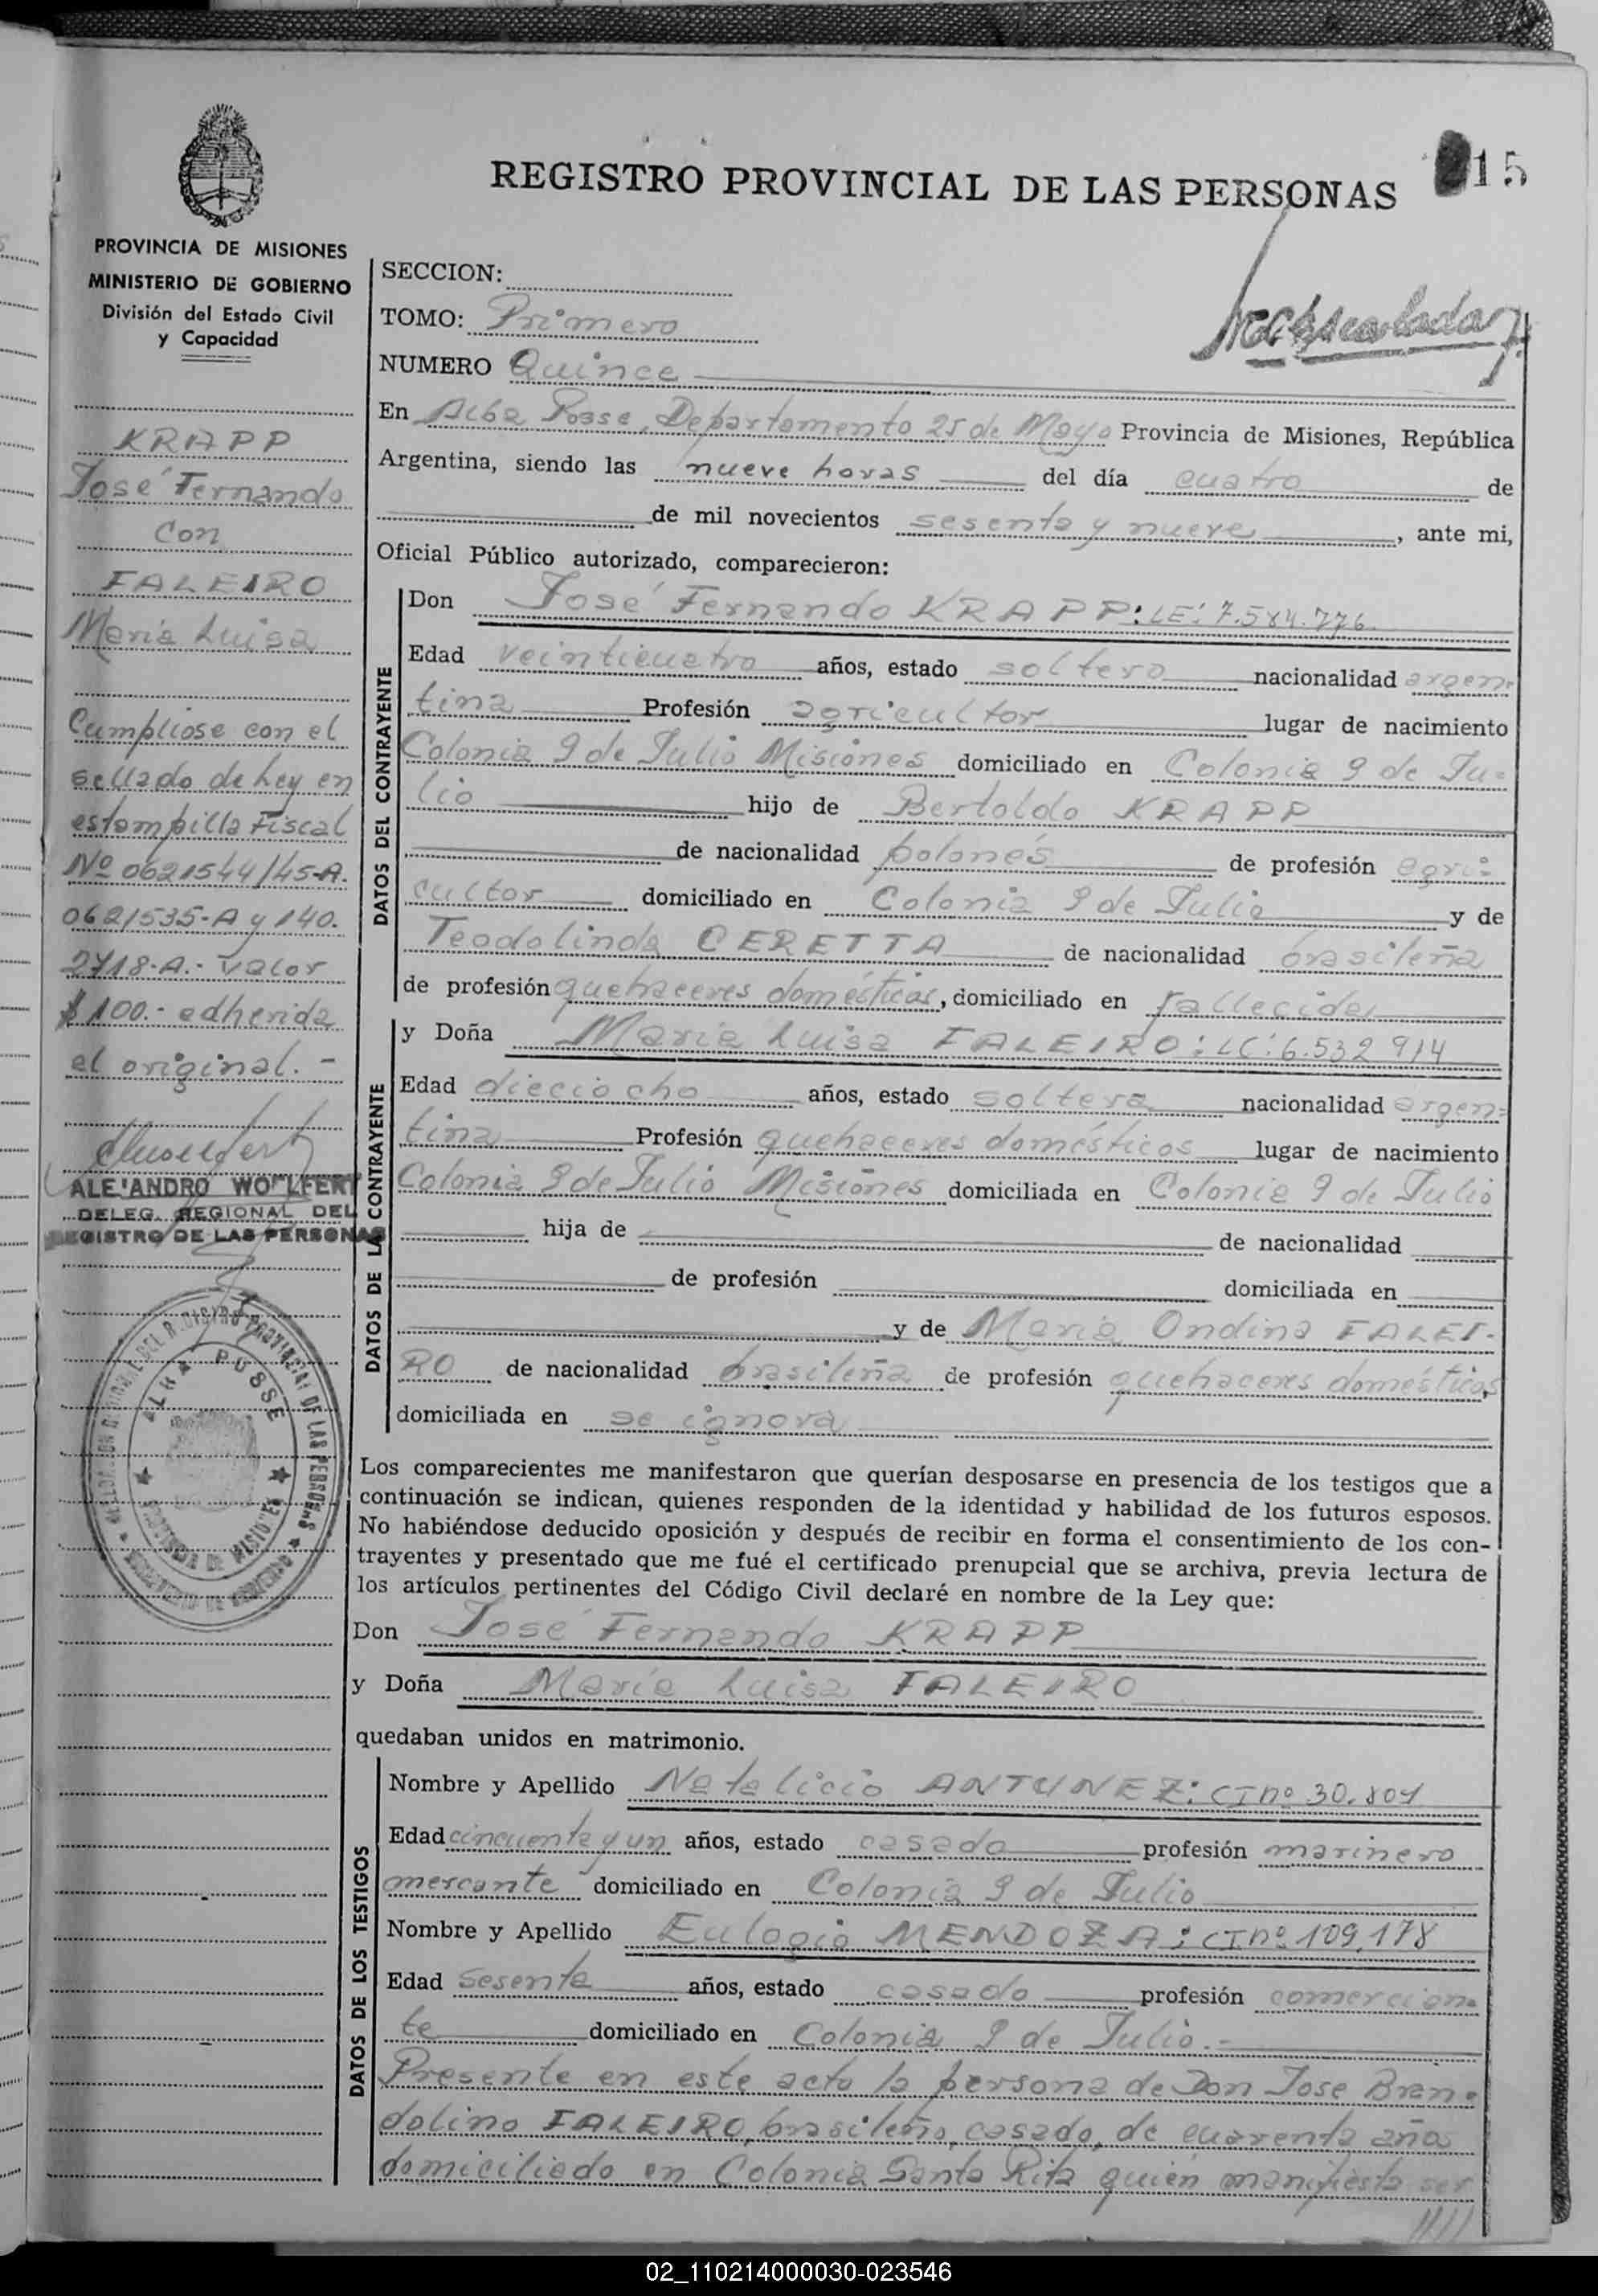 15
REGISTRO PROVINCIAL DE LAS PERSONAS
PROVINCIA DE MISIONES
MINISTERIO DE GOBIERNO
División del Estado Civil
y Capacidad
KRAPP
José Fernando
con
FALEIRO
María Luisa
Cumpliose con el
sellado de Ley en
estampilla Fiscal
Nº 0621544/45-A.
0621535-A y 140.
2718-A.- Valor
$ 100.- adherida
el original.-
ALEJANDRO WOLFERT
DELEG. REGIONAL DEL
REGISTRO DE LAS PERSONAS
ALBA POSSE
SECCION:
TOMO: Primero
NUMERO Quince
En Alba Posse, Departamento 25 de Mayo Provincia de Misiones, República
Argentina, siendo las nueve horas del día cuatro de
de mil novecientos sesenta y nueve, ante mi,
Oficial Público autorizado, comparecieron:
DATOS DEL CONTRAYENTE
Don José Fernando KRAPP: LE: 7.584.776.
Edad veinticuatro años, estado soltero nacionalidad argen-
tina Profesión agricultor lugar de nacimiento
Colonia 9 de Julio Misiones domiciliado en Colonia 9 de Ju-
lio hijo de Bertoldo KRAPP
de nacionalidad polonés de profesión agri-
cultor domiciliado en Colonia 9 de Julio y de
Teodolinda CERETTA de nacionalidad brasileña
de profesión quehaceres domésticos, domiciliado en fallecida
DATOS DE LA CONTRAYENTE
y Doña María Luisa FALEIRO: LC: 6.532914
Edad dieciocho años, estado soltera nacionalidad argen-
tina Profesión quehaceres domésticos lugar de nacimiento
Colonia 9 de Julio Misiones domiciliada en Colonia 9 de Julio
hija de de nacionalidad
de profesión domiciliada en
y de María Ondina FALEI-
RO de nacionalidad brasileña de profesión quehaceres domésticos
domiciliada en se ignora
Los comparecientes me manifestaron que querían desposarse en presencia de los testigos que a
continuación se indican, quienes responden de la identidad y habilidad de los futuros esposos.
No habiéndose deducido oposición y después de recibir en forma el consentimiento de los con-
trayentes y presentado que me fué el certificado prenupcial que se archiva, previa lectura de
los artículos pertinentes del Código Civil declaré en nombre de la Ley que:
Don José Fernando KRAPP
y Doña María Luisa FALEIRO
quedaban unidos en matrimonio.
DATOS DE LOS TESTIGOS
Nombre y Apellido Natalicio ANTUNEZ: CI nº 30.804
Edad cincuenta y un años, estado casado profesión marinero
mercante domiciliado en Colonia 9 de Julio
Nombre y Apellido Eulogio MENDOZA: CI nº 109.178
Edad sesenta años, estado casado profesión comercian-
te domiciliado en Colonia 9 de Julio.-
Presente en este acto la persona de Don Jose Bran-
dolino FALEIRO, brasileño, casado, de cuarenta años
domiciliado en Colonia Santa Rita quién manifiesta ser
02_110214000030-023546